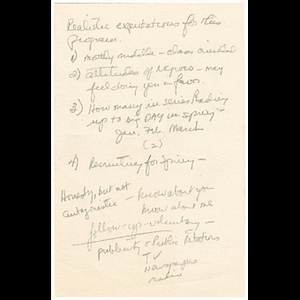 Realistic expectations for this
program.
1) mostly middle-class oriented
2) attitudes of Negroes - may
feel doing you a favor.
3) How many in series leading
up to big DAY in spring -
Jan. Feb. March
(2)
4) Recruiting for Spring -
Honesty, but not
- know about you
know about me
follow-up-voluntary -
publicity & Public Relations
TV
Newspapers
radio